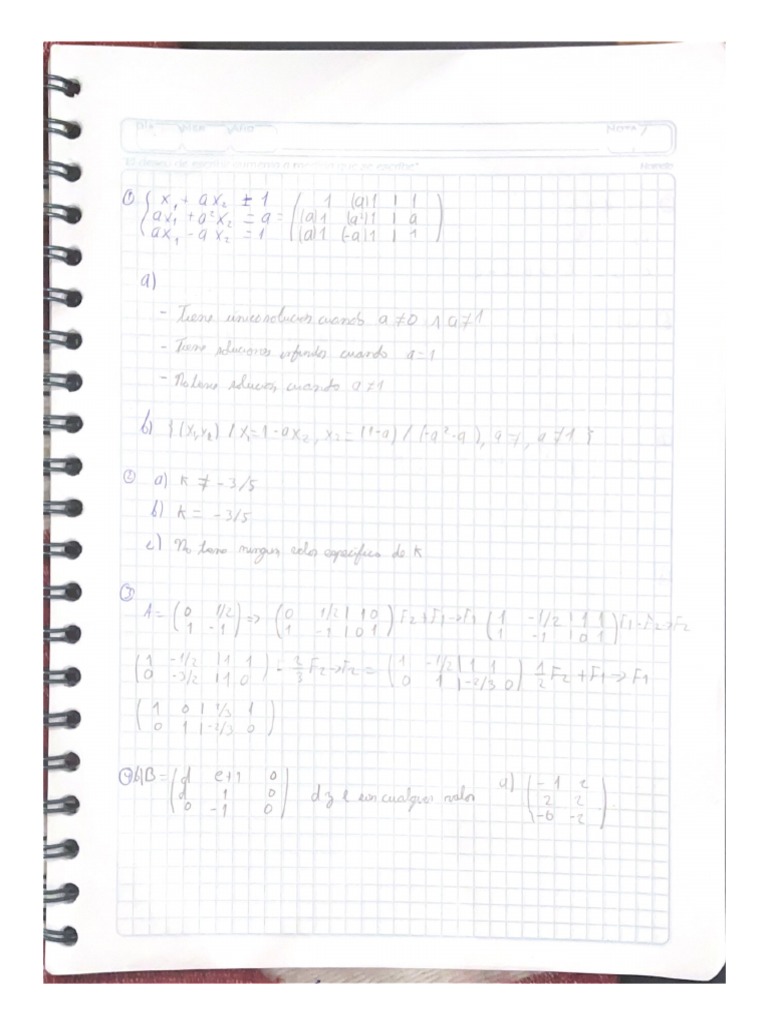 Nota 7
"El deseo de escribir aumenta a medida que se escribe"
① { x₁ + ax₂ = 1
ax₁ + a²x₂ = a
ax₁ - ax₂ = 1 = ( 1 (a)1 | 1
(a)1 (a²)1 | a
(a)1 (-a)1 | 1 )
a)
- Tiene unica solucion cuando a ≠ 0 ∧ a ≠ 1
- Tiene soluciones infinitas cuando a = 1
- No tiene solucion cuando a ≠ 1
b) { (x₁,x₂) / x₁ = 1 - ax₂, x₂ = (1-a) / (-a²-a), a ≠, a ≠ 1 }
② a) K ≠ -3/5
b) K = -3/5
c) No tiene ningun valor especifico de K
③
A = ( 0 1/2
1 -1 ) => ( 0 1/2 | 1 0
1 -1 | 0 1 ) F₂+F₁→F₁ ( 1 -1/2 | 1 1
1 -1 | 0 1 ) F₁-F₂→F₂
( 1 -1/2 | 1 1
0 -3/2 | 1 0 ) -2/3 F₂→F₂ = ( 1 -1/2 | 1 1
0 1 | -2/3 0 ) 1/2 F₂ + F₁ → F₁
( 1 0 | 1/3 1
0 1 | -2/3 0 )
④ b) B = ( d e+1 0
d 1 0
0 -1 0 ) d y e son cualquier valor a) ( -1 2
2 2
-6 -2 )